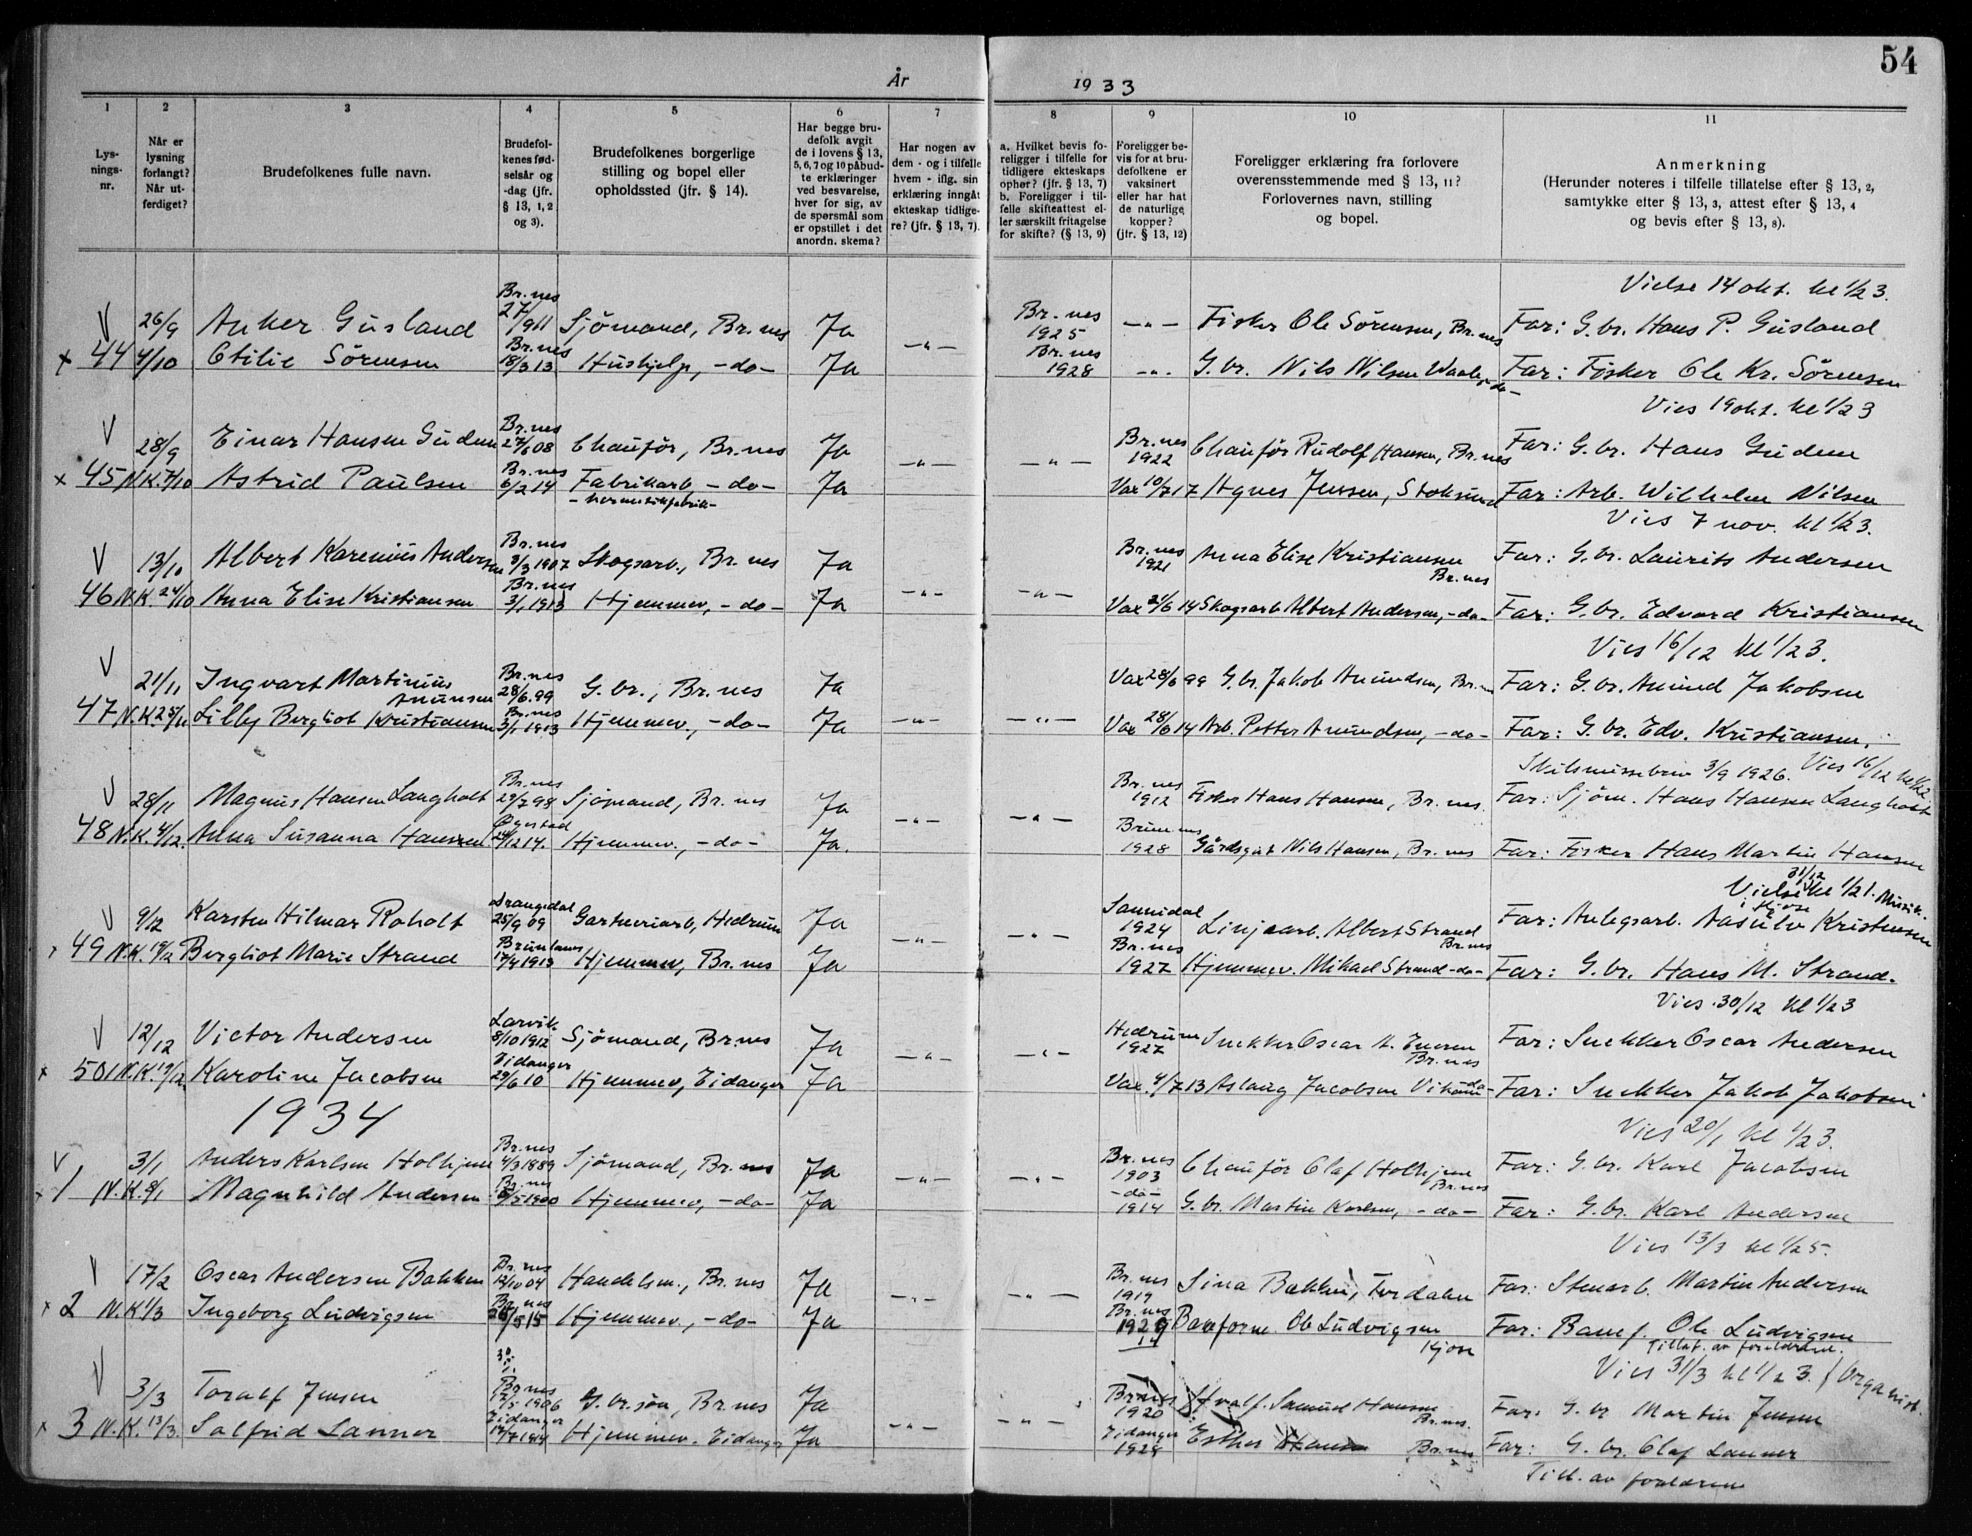 54
År 1933
1 2 3 4 5 6 7 8 9 10 11
Lys-
nings-
nr.
Når er
lysning
forlangt?
Når ut-
ferdiget?
Brudefolkenes fulle navn.
Brudefol-
kenes fød-
selsår og
-dag (jfr.
§ 13, 1, 2
og 3).
Brudefolkenes borgerlige
stilling og bopel eller
opholdssted (jfr. § 14).
Har begge bru-
defolk avgit
de i lovens § 13,
5, 6, 7 og 10 påbud-
te erklæringer
ved besvarelse,
hver for sig, av
de spørsmål som
er opstillet i det
anordn. skema?
Har nogen av
dem - og i tilfelle
hvem - iflg. sin
erklæring inngåt
ekteskap tidlige-
re? (jfr. § 13, 7).
a. Hvilket bevis fo-
religger i tilfelle for
tidligere ekteskaps
ophør? (jfr. § 13, 7)
b. Foreligger i til-
felle skifteattest el-
ler særskilt fritagelse
for skifte? (§ 13, 9)
Foreligger be-
vis for at bru-
defolkene er
vaksinert
eller har hat
de naturlige
kopper?
(jfr. § 13, 12)
Foreligger erklæring fra forlovere
overensstemmende med § 13, 11?
Forlovernes navn, stilling
og bopel.
Anmerkning
(Herunder noteres i tilfelle tillatelse efter § 13, 2,
samtykke efter § 13, 3, attest efter § 13, 4
og bevis efter § 13, 8).
Vielse 14 okt. kl 1/2 3.
V 26/9 Anker Gusland Br.nes 27/1 911 Sjømand, Br.nes Ja Br.nes 1925 —"— Fisker Ole Sørensen, Br.nes Far: G.br. Hans P. Gusland
x 44 4/10 Otilie Sørensen Br.nes 18/3 13 Hushjelp, -do- Ja —"— Br.nes 1928 —"— G.br. Nils Nilsen Waale, -do- Far: Fisker Ole Kr. Sørensen
Vies 19 okt. kl 1/2 3
V 28/9 Einar Hansen Gudem Br.nes 27/6 08 Chauför, Br.nes Ja Br.nes 1922 Chauför Rudolf Hansen, Br.nes Far: G.br. Hans Gudem
x 45 N.K. 7/10 Astrid Paulsen Br.nes 6/2 14 Fabrikarb -do- Ja —"— —"— Vax 10/7 17 Agnes Jensen, Stoksund Far: Arb. Wilhelm Nilsen
- hermetikfabrik-
Vies 7 nov. kl 1/2 3.
V 13/10 Albert Karenius Andersen Br.nes 8/3 1907 Skogsarb., Br.nes Ja Br.nes 1921 Anna Elise Kristiansen Br.nes Far: G.br. Laurits Andersen
46 N.K. 24/10 Anna Elise Kristiansen Br.nes 3/1 1913 Hjemmev, -do- Ja —"— —"— Vax 21/6 14 Skogsarb Albert Andersen, -do- Far: G.br. Edvard Kristiansen
Vies 16/12 kl 1/2 3.
V 21/11 Ingvart Martinius Amunsen Br.nes 28/6 99 G.br., Br.nes Ja Vax 28/6 99 G.br. Jakob Amundsen, Br.nes Far: G.br. Amund Jakobsen
47 N.K 25/11 Lilly Bergliot Kristiansen Br.nes 3/1 1913 Hjemmev., -do- Ja —"— —"— Vax 28/6 14 Arb. Petter Amundsen, -do- Far: G.br. Edv. Kristiansen.
Skilsmissebrev 3/9 1926. Vies 16/12 kl 1/2
V 28/11 Magnus Hansen Langholt Br.nes 29/7 98 Sjømand, Br.nes Ja Br.nes 1912 Fisker Hans Hansen, Br.nes. Far: Sjøm. Hans Hansen Langholt
48 N.K. 4/12. Anna Susanna Hansen 24/12 14. Hjemmev., -do- Ja. —"— —"— 1928 Nils Hansen, Br.nes Far: Fisker Hans Martin Hansen
31/12
Vielse kl 1/2 1. Musik.
V 9/12 Karsten Hilmar Roholt Drangedal 25/9 09 Gartneriarb, Hedrum Ja Sannidal 1924 Linjearb. Albert Strand Br.nes Far: Anlegsarb. Aasulv Kristensen
x 49 N.K. 19/12 Bergliot Marie Strand Brunlanes 17/4 1913 Hjemmev, Br.nes Ja —"— —"— Br.nes 1927 Hjemmev. Mikael Strand -do- Far: G.br. Hans M. Strand.
Vies 30/12 kl 1/2 3
V 12/12 Victor Andersen Larvik 8/10 1912 Sjømand, Br.nes Ja Hedrum 1927 Snekker Oscar A. Br.nes Far: Snekker Oscar Andersen
x 50 N.K. 19/12 Karoline Jacobsen Eidanger 29/6 10 Hjemmev, Eidanger Ja —"— —"— Vax. 4/7 13 Aslaug Jacobsen -do- Far: Snekker Jakob Jakobsen
1934
Vies 20/1 kl 1/2 3.
V 3/1 Anders Karlsen Holhjem Br.nes 4/3 1889 Sjömand, Br.nes Ja Br.nes 1903 Chauför Olaf Holhjem Br.nes Far: G.br. Karl Jacobsen
x 1 N.K. 8/1 Magnhild Andersen Br.nes 8/5 1900 Hjemmev, -do- Ja —"— —"— -do- 1914 G.br. Martin Karlsen, -do- Far: G.br. Karl Andersen
Vies 13/3 kl 1/2 5.
V 17/2 Oscar Andersen Bakken Br.nes 12/10 04 Handelsm., Br.nes Ja Br.nes 1919 Sina Bakken, Tordalen Far: Stenarb. Martin Andersen
x 2 N.K. 1/3 Ingeborg Ludvigsen Br.nes 26/5 15 Hjemmev, -do- Ja —"— —"— Br.nes 1929 Baneform. Ole Ludvigsen Kjose Far: Banef. Ole Ludvigsen
Tillat. av foreldrene.
Vies 31/3 kl 1/2 3. / Organist.
V 3/3 Toralf Jensen Br.nes 17/5 1906 G.br.søn, Br.nes Ja Br.nes 1920 Hvalf. Samuel Hansen Br.nes. Far: G.br Martin Jensen
x 3 N.K. 13/3. Salfrid Lanner Eidanger Hjemmev. Eidanger Ja —"— —"— Eidanger 1929 Esther Br.nes Far: G.br. Olaf Lanner
Till. av foreldrene